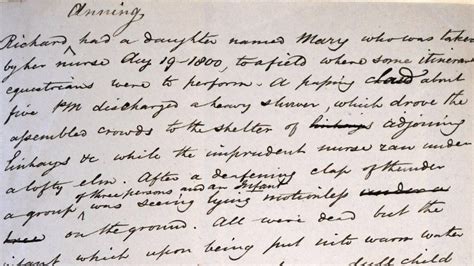 Anning
Richard, had a daughter named Mary who was taken
by her nurse Aug 19-1800, to a field where some itinerant
equestrians were to perform. A passing cloud about
five PM discharged a heavy shower, which drove the
assembled crowds to the shelter of linhays adjoining
linhays &c while the imprudent nurse ran under
a lofty elm. After a deafening clap of thunder
of three persons and an Infant
a group was seeing lying motionless under a
tree on the ground. All were dead but the
infant which upon being put into warm water
child